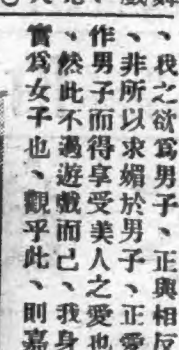 、我之欲爲男子、正與相反
、非所以求媚於男子、正愛
作男子而得享受美人之愛也
、然此不過遊戲而已、我身
實爲女子也、觀乎此、則嘉